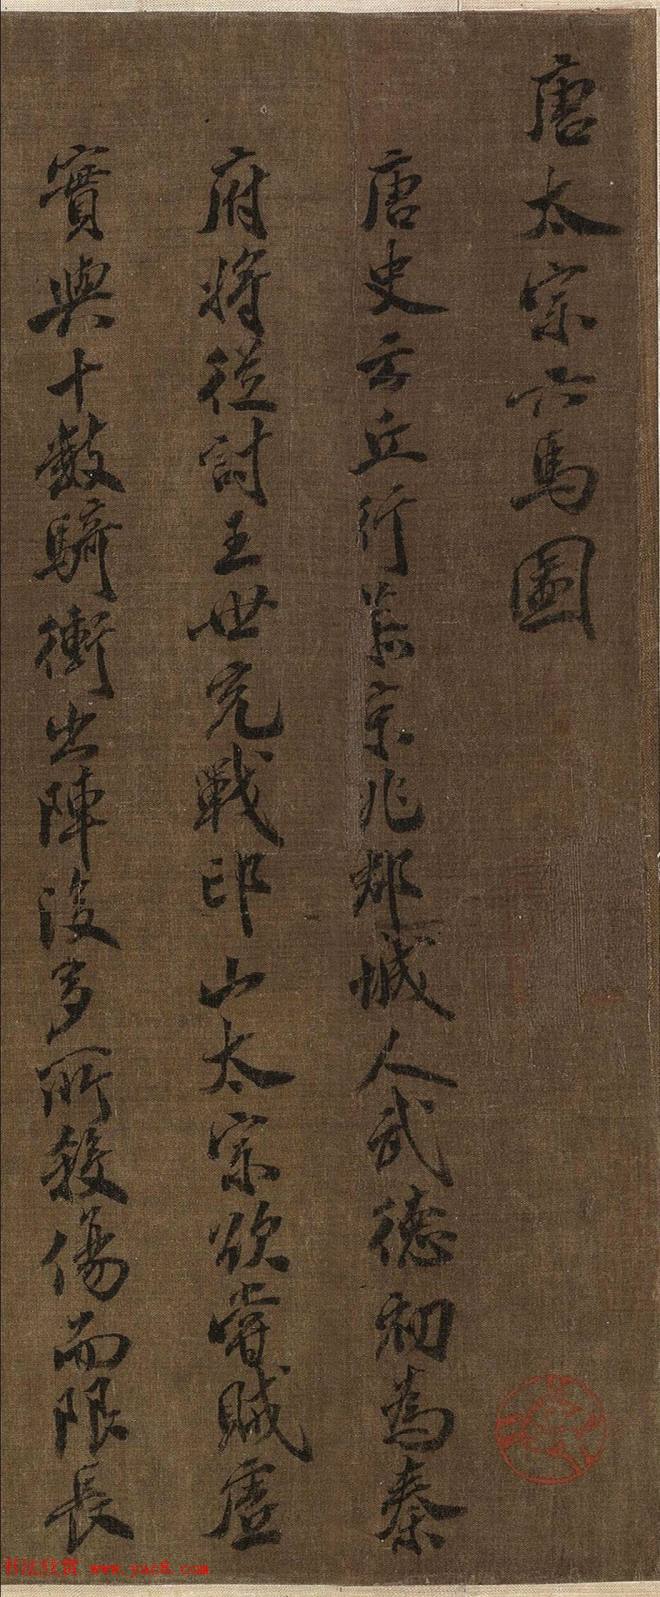 唐太宗六馬圖
唐史云丘行恭京兆郡城人武德初為秦
府將從討王世充戰邙山太宗欲嘗賊虛
實與十數騎衝出陣後多所殺傷而限長
www.yac8.com